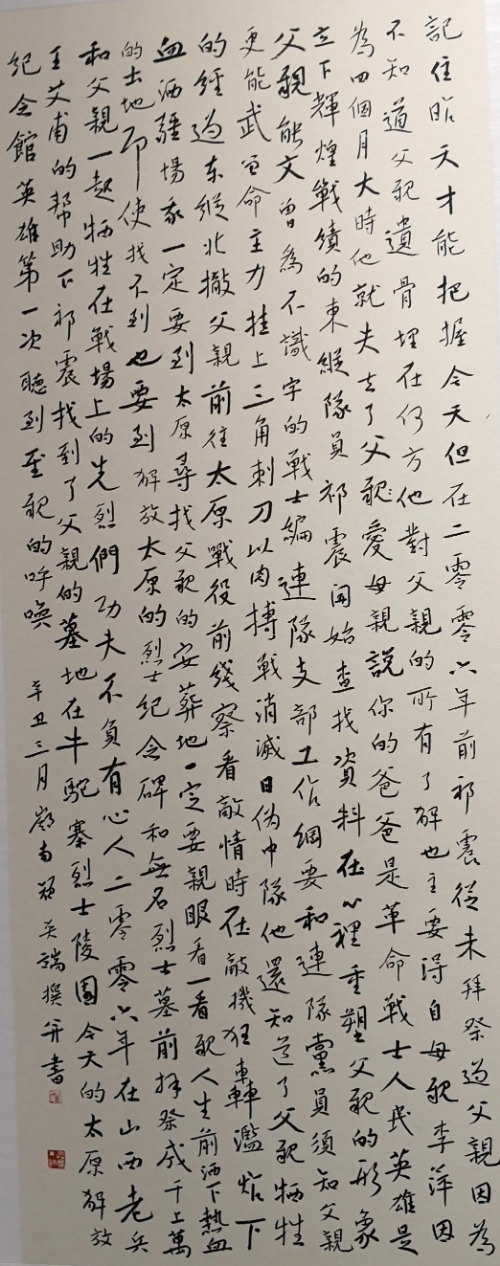 記住昨天才能把握今天但在二零零六年前祁震從未拜祭過父親因為
不知道父親遺骨埋在何方他對父親的所有了解也主要得自母親李萍因
為四個月大時他就失去了父親愛母親說你的爸爸是革命戰士人民英雄是
立下輝煌戰績的東縱隊員祁震開始查找資料在心裡重塑父親的形象
父親能文曾為不識字的戰士編連隊支部工作綱要和連隊黨員須知父親
更能武奮命主力挂上三角刺刀以肉搏戰消滅日偽中隊他還知道了父親牺牲
的經過东縱北撤父親前往太原戰役前线察看敵情時在敵機狂轟濫炸下
血洒疆場震一定要到太原尋找父親的安葬地一定要親眼看一看親人生前洒下熱血
的土地即使找不到也要到解放太原的烈士纪念碑和無名烈士墓前拜祭成千上萬
和父親一起牺牲在戰場上的先烈們功夫不負有心人二零零六年在山西老兵
王艾甫的帮助下祁震找到了父親的墓地在牛駝寨烈士陵園今天的太原解放
纪念館英雄第一次聽到至親的呼喚
辛丑三月嶺南 英瑞撰并書